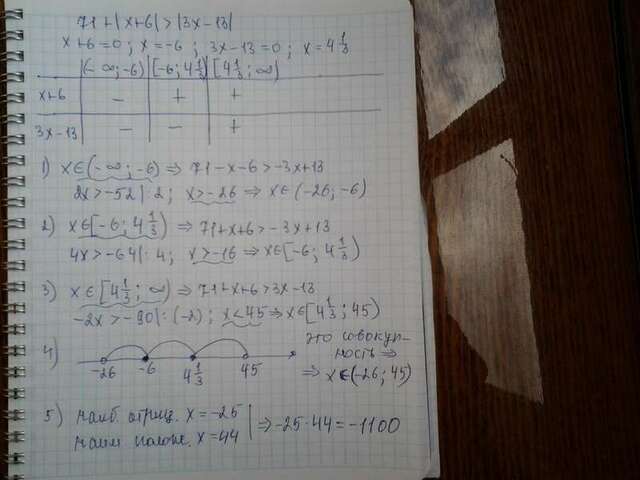 71+|x+6|>|3x-13|
x+6=0; x=-6; 3x-13=0; x=4 1/3
(-∞;-6) [-6;4 1/3) [4 1/3;∞)
x+6 - + +
3x-13 - - +
1) x∈(-∞;-6) ⇒ 71-x-6>-3x+13
2x>-52|:2; x>-26 ⇒ x∈(-26;-6)
2) x∈[-6;4 1/3) ⇒ 71+x+6>-3x+13
4x>-64|:4; x>-16 ⇒ x∈[-6;4 1/3)
3) x∈[4 1/3;∞) ⇒ 71+x+6>3x-13
-2x>-90|:(-2); x<45 ⇒ x∈[4 1/3;45)
4) -26 -6 4 1/3 45
это совокуп-
ность ⇒
⇒ x∈(-26;45)
5) наиб. отриц. x=-25
наим полож. x=44
⇒ -25·44=-1100